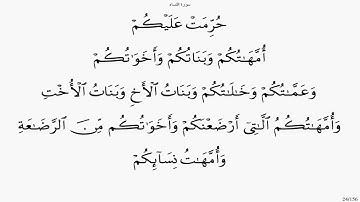 سورة النساء
حُرِّمَتْ عَلَيْكُمْ
أُمَّهَٰتُكُمْ وَبَنَاتُكُمْ وَأَخَوَٰتُكُمْ
وَعَمَّٰتُكُمْ وَخَٰلَٰتُكُمْ وَبَنَاتُ ٱلْأَخِ وَبَنَاتُ ٱلْأُخْتِ
وَأُمَّهَٰتُكُمُ ٱلَّٰتِىٓ أَرْضَعْنَكُمْ وَأَخَوَٰتُكُم مِّنَ ٱلرَّضَٰعَةِ
وَأُمَّهَٰتُ نِسَآئِكُمْ
24/156